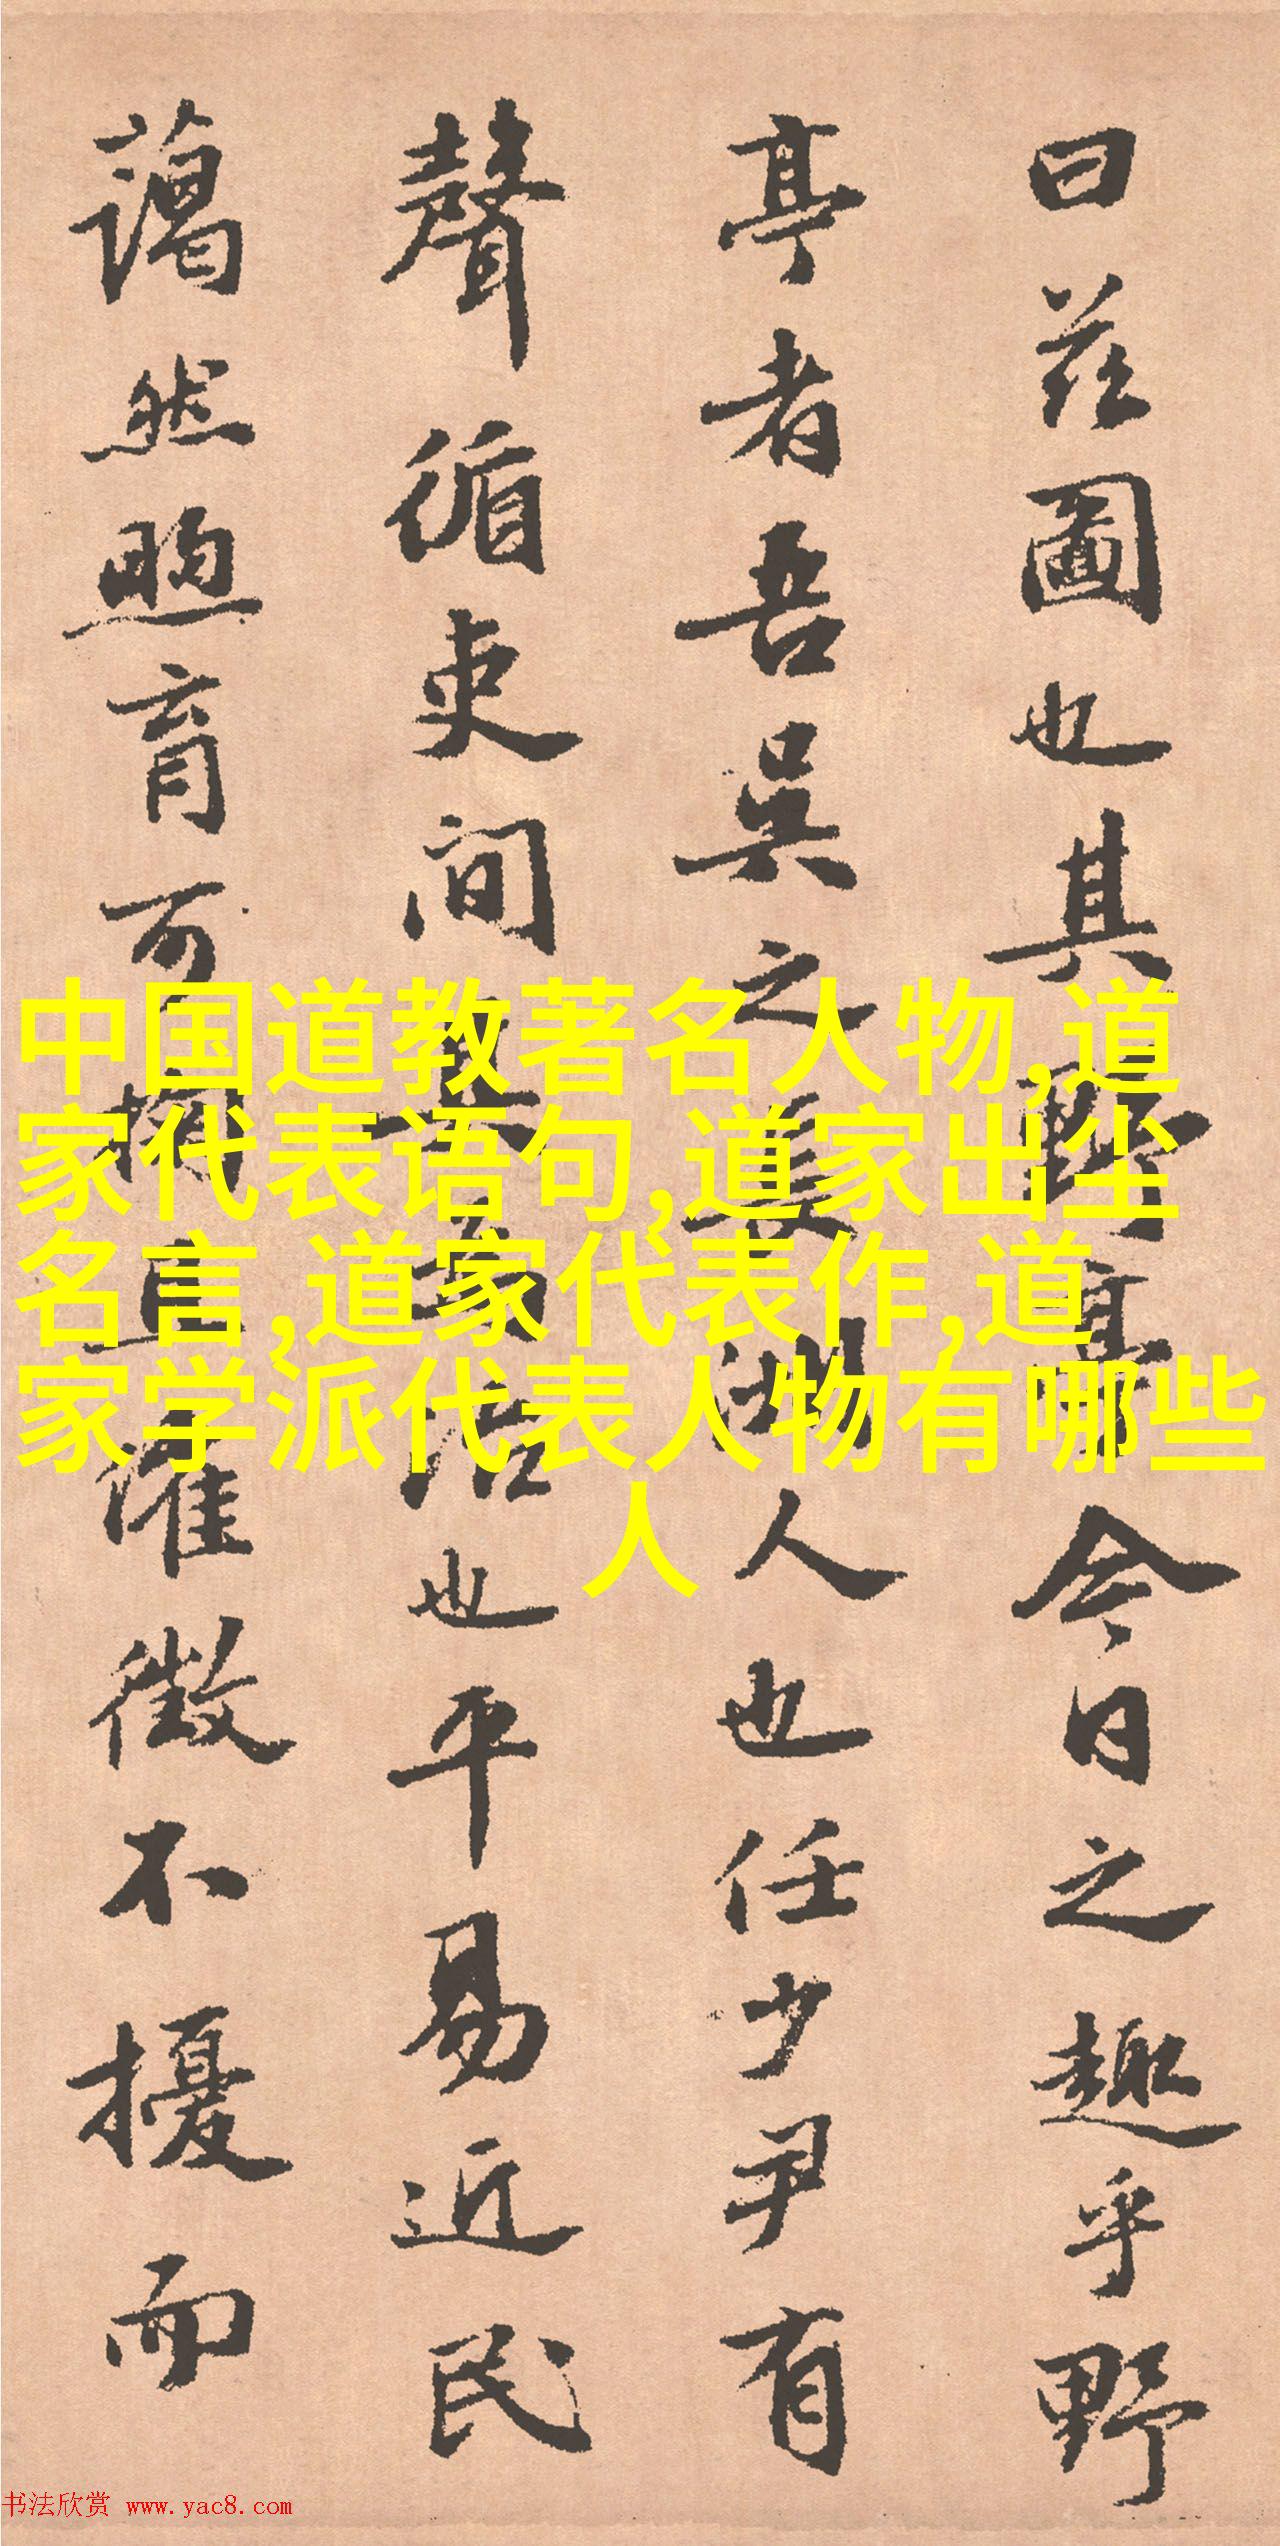 曰茲圖也其野亭今日之趣乎野
亭者吾吳之長洲人也任少尹有
聲循吏間其為治也平易近民
藹然煦育可掬且催徵不擾而
中国道教著名人物,道
家代表语句,道家出尘
名言,道家代表作,道
家学派代表人物有哪些
人
书法欣赏 www.yac8.com